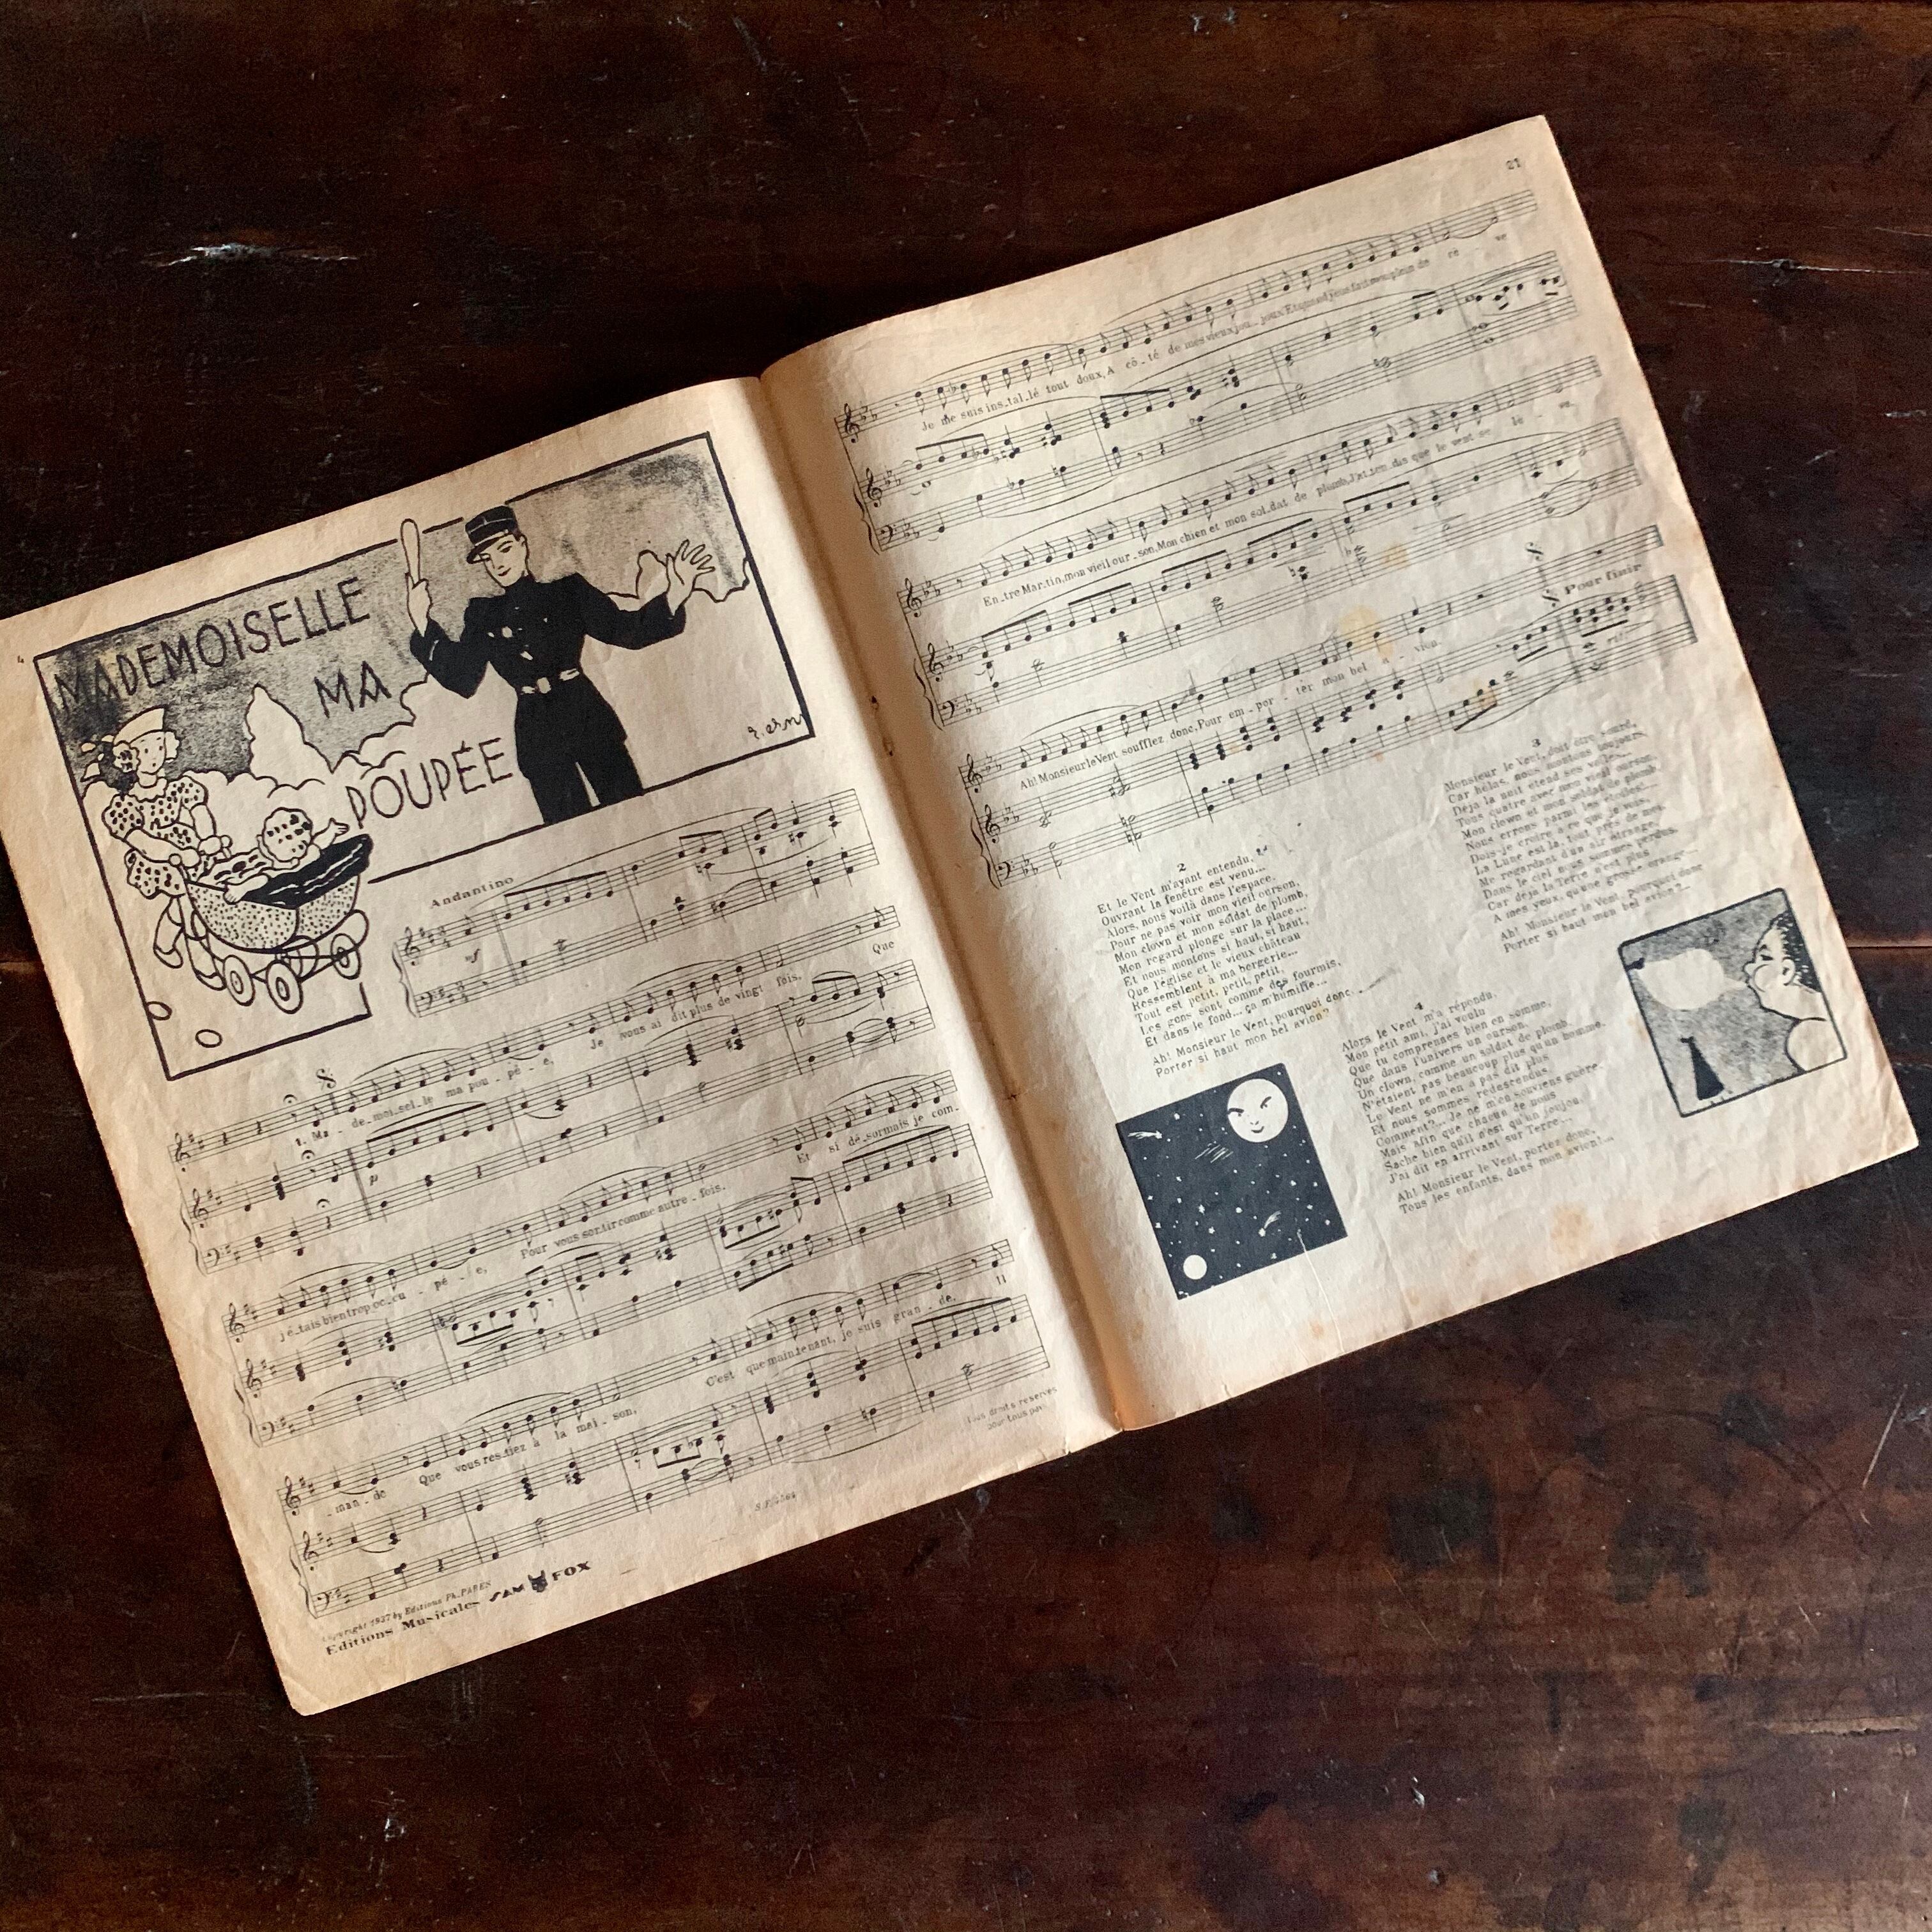 4
MADEMOISELLE
MA
POUPÉE
Andantino
mf
Que
1. Ma - de_moi_sel_le ma pou - pé - e, Je vous ai dit plus de vingt fois,
p
Et si dé_sormais je com_
j'é_tais bien trop oc_cu - pé - e, Pour vous sortir comme autre - fois.
Il
_ man - de Que vous res_tiez à la mai - son, C'est que maintenant, je suis gran - de,
Copyright 1937 by Editions Ph. PARES
Editions Musicales SAM FOX
Tous droits réservés
pour tous pays
21
Je me suis ins_tal_lé tout doux, A cô - té de mes vieux jou - joux Et quand j'eus fait mon plein de rê - ve
En_tre Mar_tin, mon vieil our - son, Mon chien et mon sol_dat de plomb, J'at_ten_dis que le vent se lè - ve,
Ah! Monsieur le Vent soufflez donc, Pour em - por - ter mon bel a - vion.
Pour finir
2
Et le Vent m'ayant entendu,
Ouvrant la fenêtre est venu...
Alors, nous voilà dans l'espace,
Pour ne pas voir mon vieil ourson,
Mon clown et mon soldat de plomb,
Mon regard plonge sur la place...
Et nous montons si haut, si haut,
Que l'église et le vieux château
Ressemblent à ma bergerie...
Tout est petit, petit, petit,
Les gens sont comme des fourmis,
Et dans le fond... ça m'humilie...
Ah! Monsieur le Vent, pourquoi donc
Porter si haut mon bel avion?
3
Monsieur le Vent, doit être sourd,
Car hélas, nous montons toujours,
Déjà la nuit étend ses voiles...
Tous quatre avec mon vieil ourson,
Mon clown et mon soldat de plomb,
Nous errons parmi les étoiles!...
Dois-je croire à ce que je vois,
La Lune est là, tout près de moi,
Me regardant d'un air étrange,
Dans le ciel nous sommes perdus,
Car déjà la Terre n'est plus
A mes yeux, qu'une grosse orange...
Ah! Monsieur le Vent, pourquoi donc
Porter si haut mon bel avion?...
4
Alors le Vent m'a répondu,
Mon petit ami, j'ai voulu
Que tu comprennes bien en somme,
Que dans l'univers un ourson,
Un clown, comme un soldat de plomb,
N'étaient pas beaucoup plus qu'un homme.
Le Vent ne m'en a pas dit plus
Et nous sommes redescendus,
Comment?... Je ne m'en souviens guère
Mais afin que chacun de nous
Sache bien qu'il n'est qu'un joujou,
J'ai dit en arrivant sur Terre:
Ah! Monsieur le Vent, portez donc,
Tous les enfants, dans mon avion!...